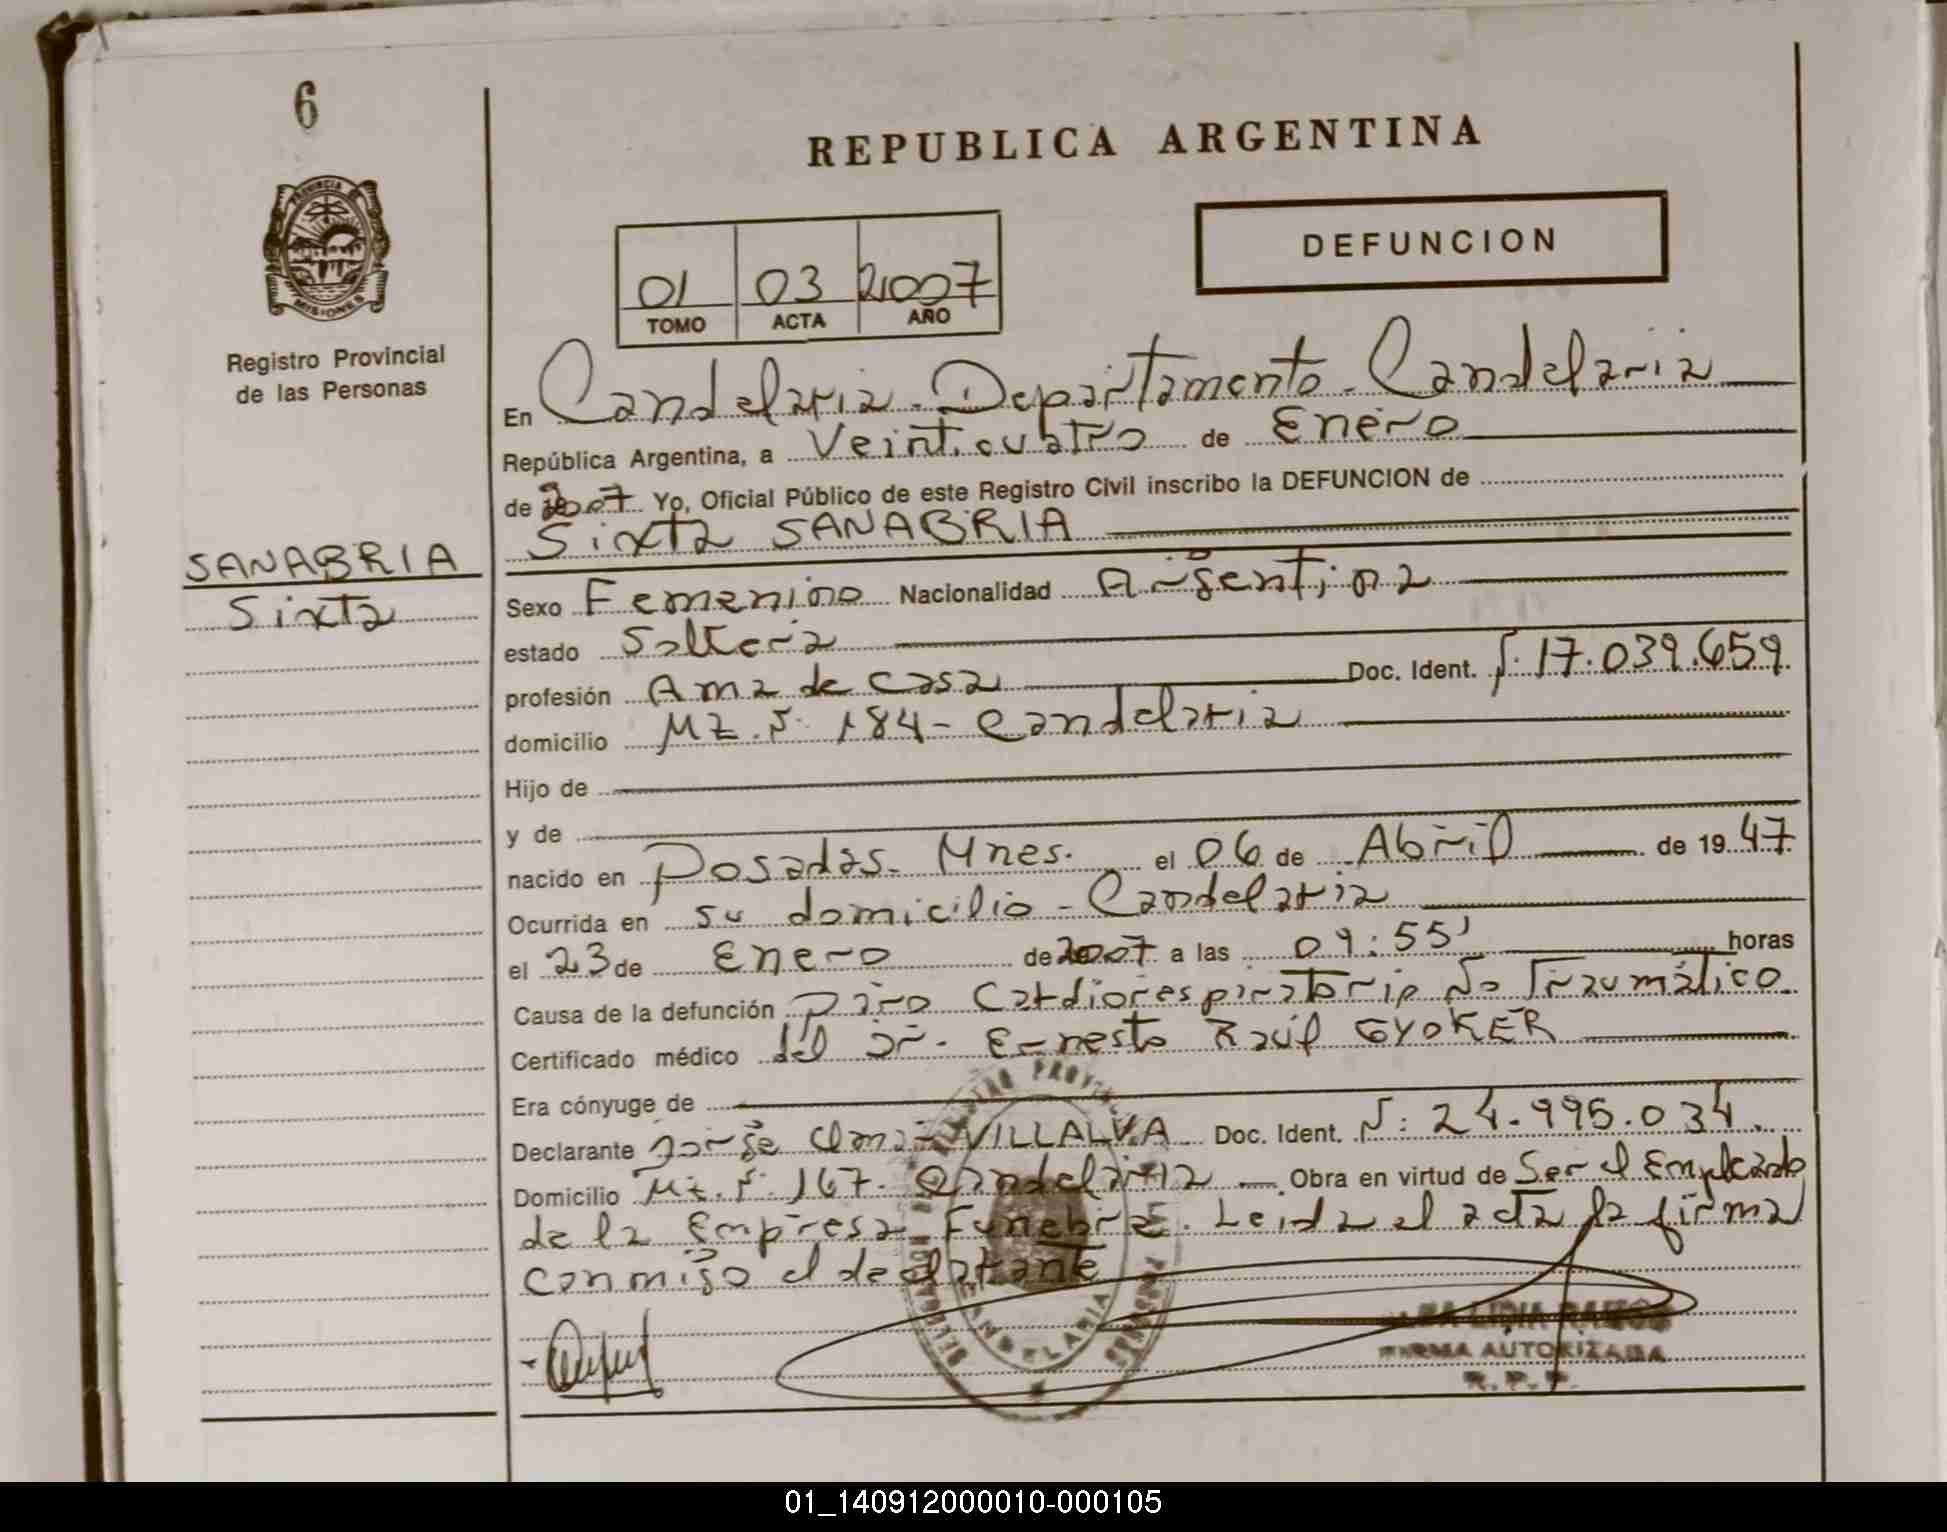 6
PROVINCIA DE
MISIONES
Registro Provincial
de las Personas
SANABRIA
Sixta
REPUBLICA ARGENTINA
DEFUNCION
01 03 2007
TOMO ACTA AÑO
En Candelaria - Departamento - Candelaria
República Argentina, a Veinticuatro de Enero
de 2007 Yo, Oficial Público de este Registro Civil inscribo la DEFUNCION de
Sixta SANABRIA
Sexo Femenino Nacionalidad Argentina
estado Soltera
profesión Ama de casa Doc. Ident. N: 17.039.659
domicilio Mz. N: 184 - Candelaria
Hijo de
y de
nacido en Posadas - Mnes. el 06 de Abril de 19 47
Ocurrida en su domicilio - Candelaria
el 23 de Enero de 2007 a las 09:55' horas
Causa de la defunción paro Cardiorespiratorio No Traumático
Certificado médico del Dr. Ernesto Raúl GYOKER
Era cónyuge de
Declarante Jorge Omar VILLALVA Doc. Ident. N: 24.995.034.
Domicilio Mz. N: 167 - Candelaria Obra en virtud de Ser el Empleado
de la Empresa Funebre. Leida el acta la firma
conmigo el declarante
LIDIA RAMOS
FIRMA AUTORIZADA
R. P. P.
CANDELARIA
01_140912000010-000105